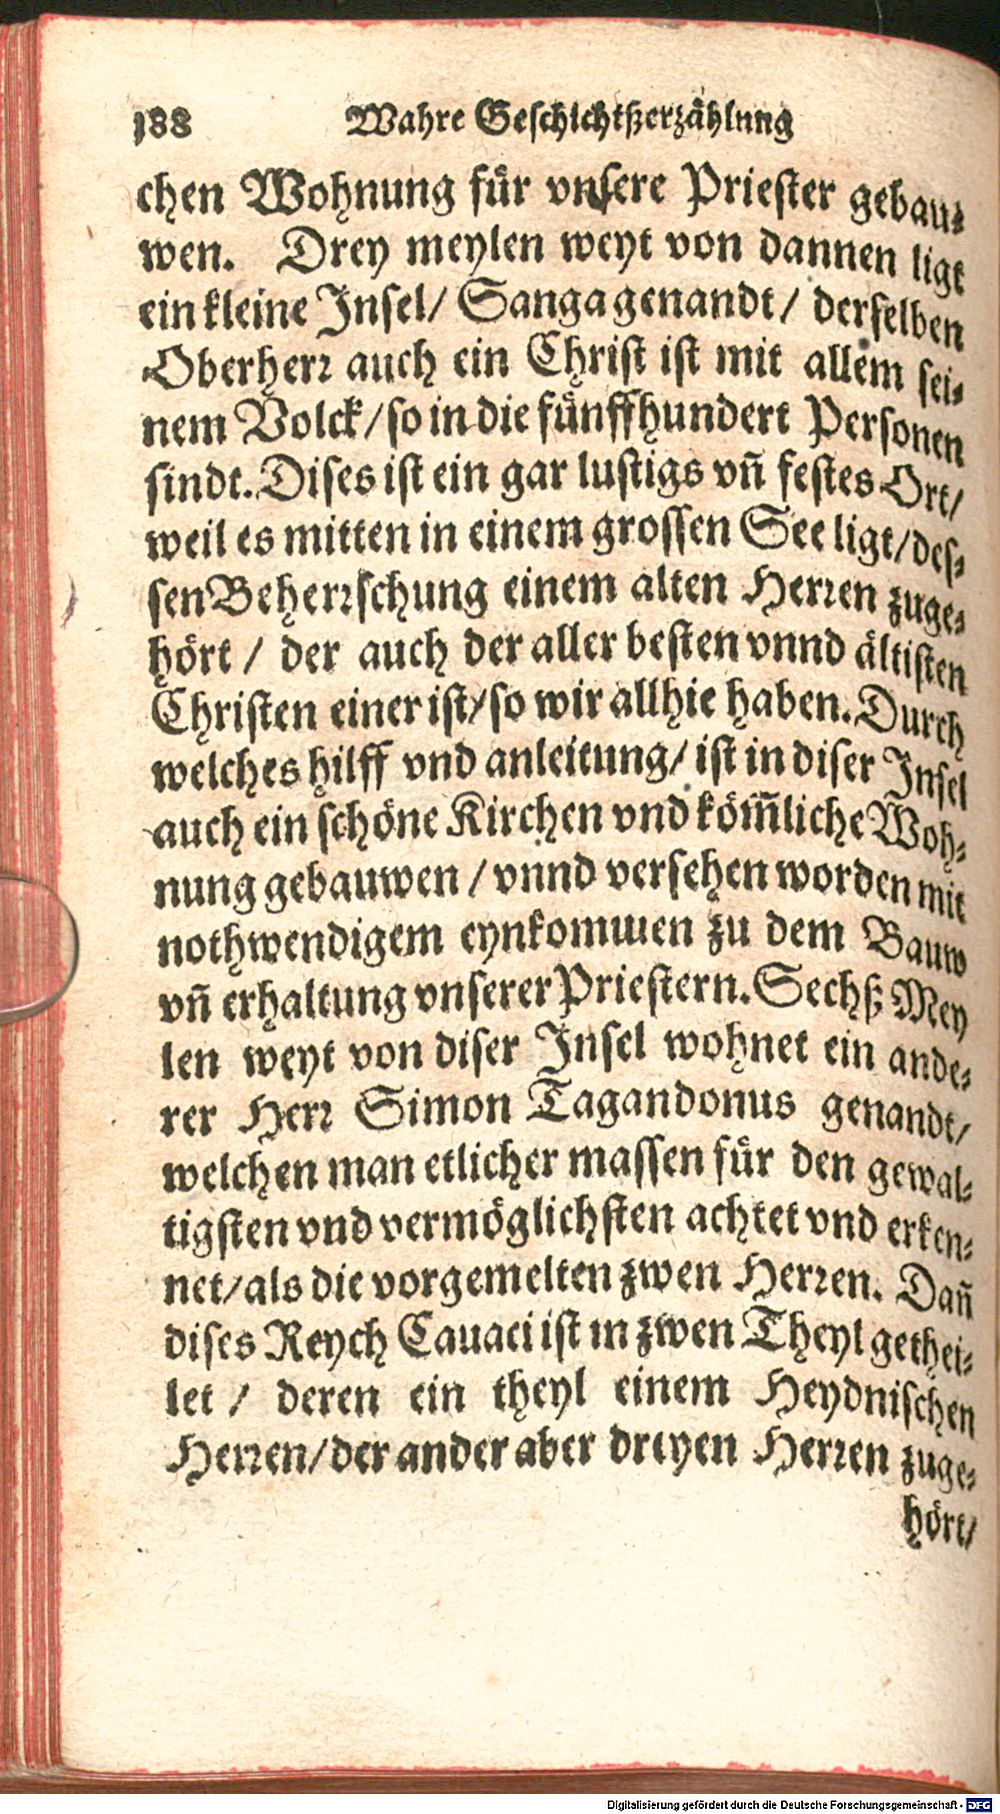 188 Wahre Geschichtßerzählung
chen Wohnung für vnsere Priester gebau⸗
wen. Drey meylen weyt von dannen ligt
ein kleine Insel/ Sanga genandt/ derselben
Oberherr auch ein Christ ist mit allem sei⸗
nem Volck/ so in die fünffhundert Personen
sindt. Dises ist ein gar lustigs vn̄ festes Ort/
weil es mitten in einem grossen See ligt/ des⸗
sen Beherrschung einem alten Herren zuge⸗
hört/ der auch der aller besten vnnd ältisten
Christen einer ist/ so wir allhie haben. Durch
welches hilff vnd anleitung/ ist in diser Insel
auch ein schöne Kirchen vnd köm̄liche Woh⸗
nung gebauwen/ vnnd versehen worden mit
nothwendigem eynkommen zu dem Bauw
vn̄ erhaltung vnserer Priestern. Sechß Mey
len weyt von diser Insel wohnet ein ande⸗
rer Herr Simon Tagandonus genandt/
welchen man etlicher massen für den gewal⸗
tigsten vnd vermöglichsten achtet vnd erken⸗
net/ als die vorgemelten zwen Herren. Dan̄
dises Reych Cauaci ist in zwen Theyl gethei⸗
let/ deren ein theyl einem Heydnischen
Herren/ der ander aber dreyen Herren zuge⸗
hört/
Digitalisierung gefördert durch die Deutsche Forschungsgemeinschaft - DFG